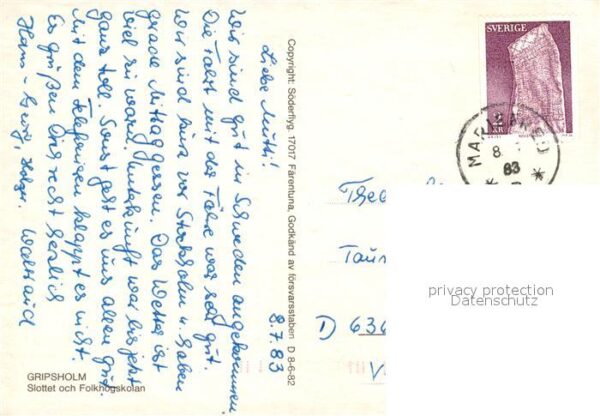 8.7.83
Liebe Mutti!
Wir sind gut in Schweden angekommen.
Die Fahrt mit der Fähre war sehr gut.
Wir sind kurz vor Stockholm u. haben
gerade Mittag gegessen. Das Wetter ist
viel zu warm. Unterkunft war bis jetzt
ganz toll. Sonst geht es uns allen gut.
Mit dem Telefonieren klappt es nicht.
Es grüßen Dich recht herzlich
Hans-Georg, Holger, Waltraud
GRIPSHOLM
Slottet och Folkhögskolan
Copyright: Söderflyg, 17017 Färentuna. Godkänd av försvarsstaben D 8-6-82
SVERIGE
2 KR
8.
83
D 636
privacy protection
Datenschutz